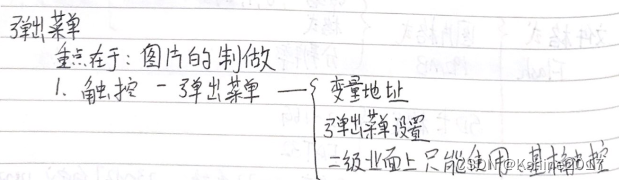 弹出菜单
重点在于：图片的制做
1. 触控 - 弹出菜单 —{ 变量地址
弹出菜单设置
二级业面上只能使用、基梯触控